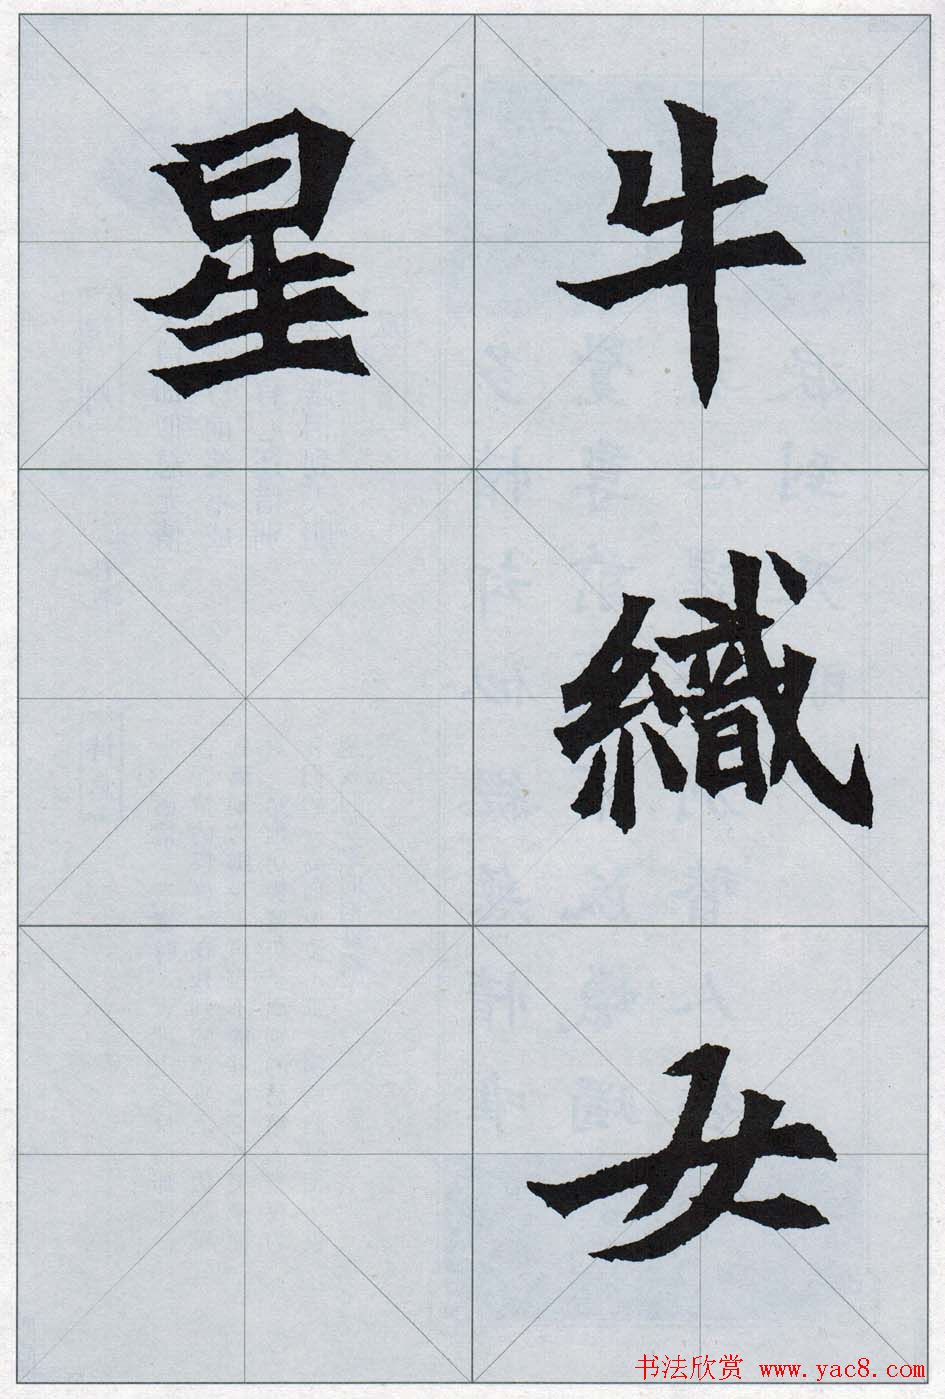 牛織女
星
书法欣赏 www.yac8.com